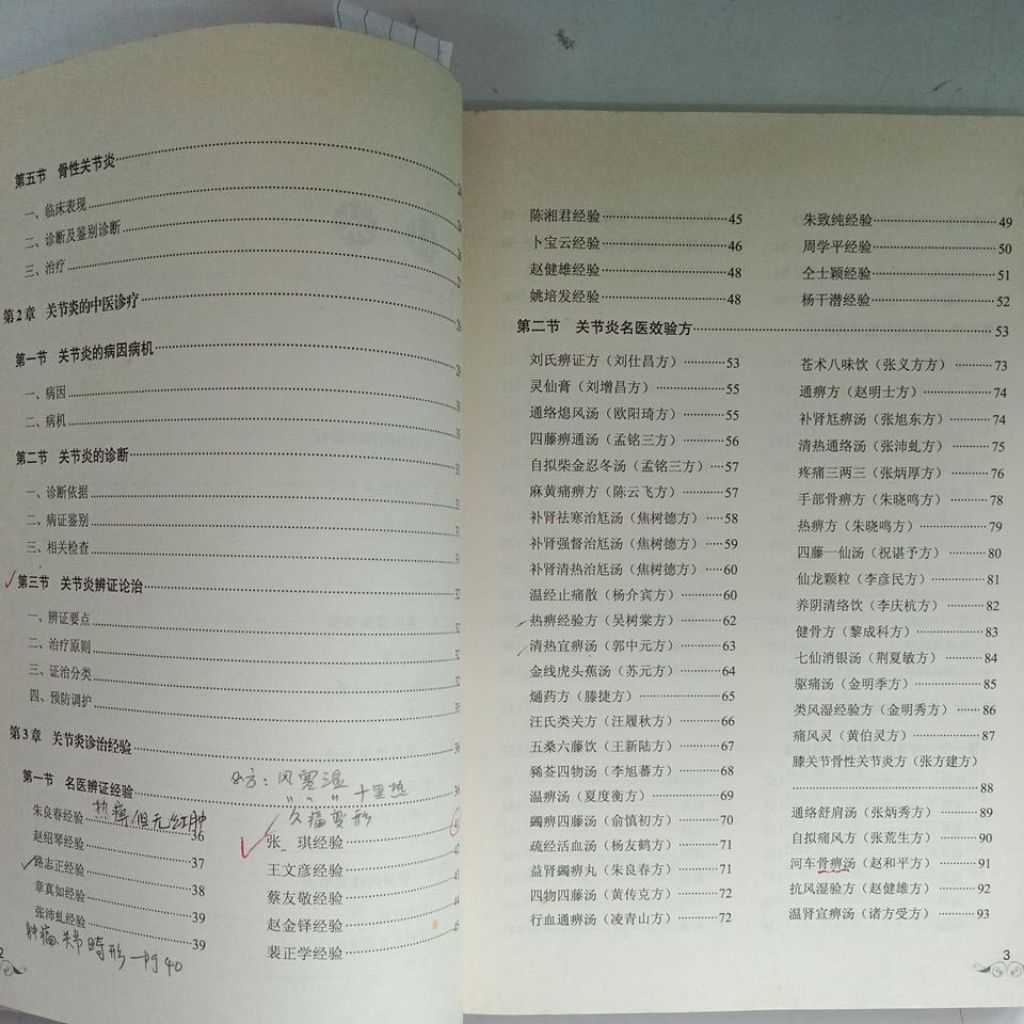 第五节 骨性关节炎
一、临床表现
二、诊断及鉴别诊断
三、治疗
第2章 关节炎的中医诊疗
第一节 关节炎的病因病机
一、病因
二、病机
第二节 关节炎的诊断
一、诊断依据
二、病证鉴别
三、相关检查
第三节 关节炎辨证论治
一、辨证要点
二、治疗原则
三、证治分类
四、预防调护
第3章 关节炎诊治经验
第一节 名医辨证经验
朱良春经验 36
热痹,但无红肿
赵绍琴经验 37
路志正经验 38
章真如经验 39
张沛虬经验 39
肿痛、关节畸形
40
方:风寒湿
〃 〃 〃 十里热
久痛变形
张 琪经验
王文彦经验
蔡友敬经验
赵金铎经验
裴正学经验
2
陈湘君经验 45
卜宝云经验 46
赵健雄经验 48
姚培发经验 48
朱致纯经验 49
周学平经验 50
仝士颖经验 51
杨干潜经验 52
第二节 关节炎名医效验方 53
刘氏痹证方(刘仕昌方) 53
灵仙膏(刘增昌方) 55
通络熄风汤(欧阳琦方) 55
四藤痹通汤(孟铭三方) 56
自拟柴金忍冬汤(孟铭三方) 57
麻黄痛痹方(陈云飞方) 57
补肾祛寒治尪汤(焦树德方) 58
补肾强督治尪汤(焦树德方) 59
补肾清热治尪汤(焦树德方) 60
温经止痛散(杨介宾方) 60
热痹经验方(吴树棠方) 62
清热宣痹汤(郭中元方) 63
金线虎头蕉汤(苏元方) 64
熥药方(滕捷方) 65
汪氏类关方(汪履秋方) 66
五桑六藤饮(王新陆方) 67
豨莶四物汤(李旭蕃方) 68
温痹汤(夏度衡方) 69
蠲痹四藤汤(俞慎初方) 70
疏经活血汤(杨友鹤方) 71
益肾蠲痹丸(朱良春方) 71
四物四藤汤(黄传克方) 72
行血通痹汤(凌青山方) 72
苍术八味饮(张义方方) 73
通痹方(赵明士方) 74
补肾尪痹汤(张旭东方) 74
清热通络汤(张沛虬方) 75
疼痛三两三(张炳厚方) 76
手部骨痹方(朱晓鸣方) 78
热痹方(朱晓鸣方) 79
四藤一仙汤(祝谌予方) 80
仙龙颗粒(李彦民方) 81
养阴清络饮(李庆杭方) 82
健骨方(黎成科方) 83
七仙消银汤(荆夏敏方) 84
驱痛汤(金明季方) 85
类风湿经验方(金明秀方) 86
痛风灵(黄伯灵方) 87
膝关节骨性关节炎方(张方建方)
88
通络舒肩汤(张炳秀方) 89
自拟痛风方(张荒生方) 90
河车骨痹汤(赵和平方) 91
抗风湿验方(赵健雄方) 92
温肾宣痹汤(诸方受方) 93
3